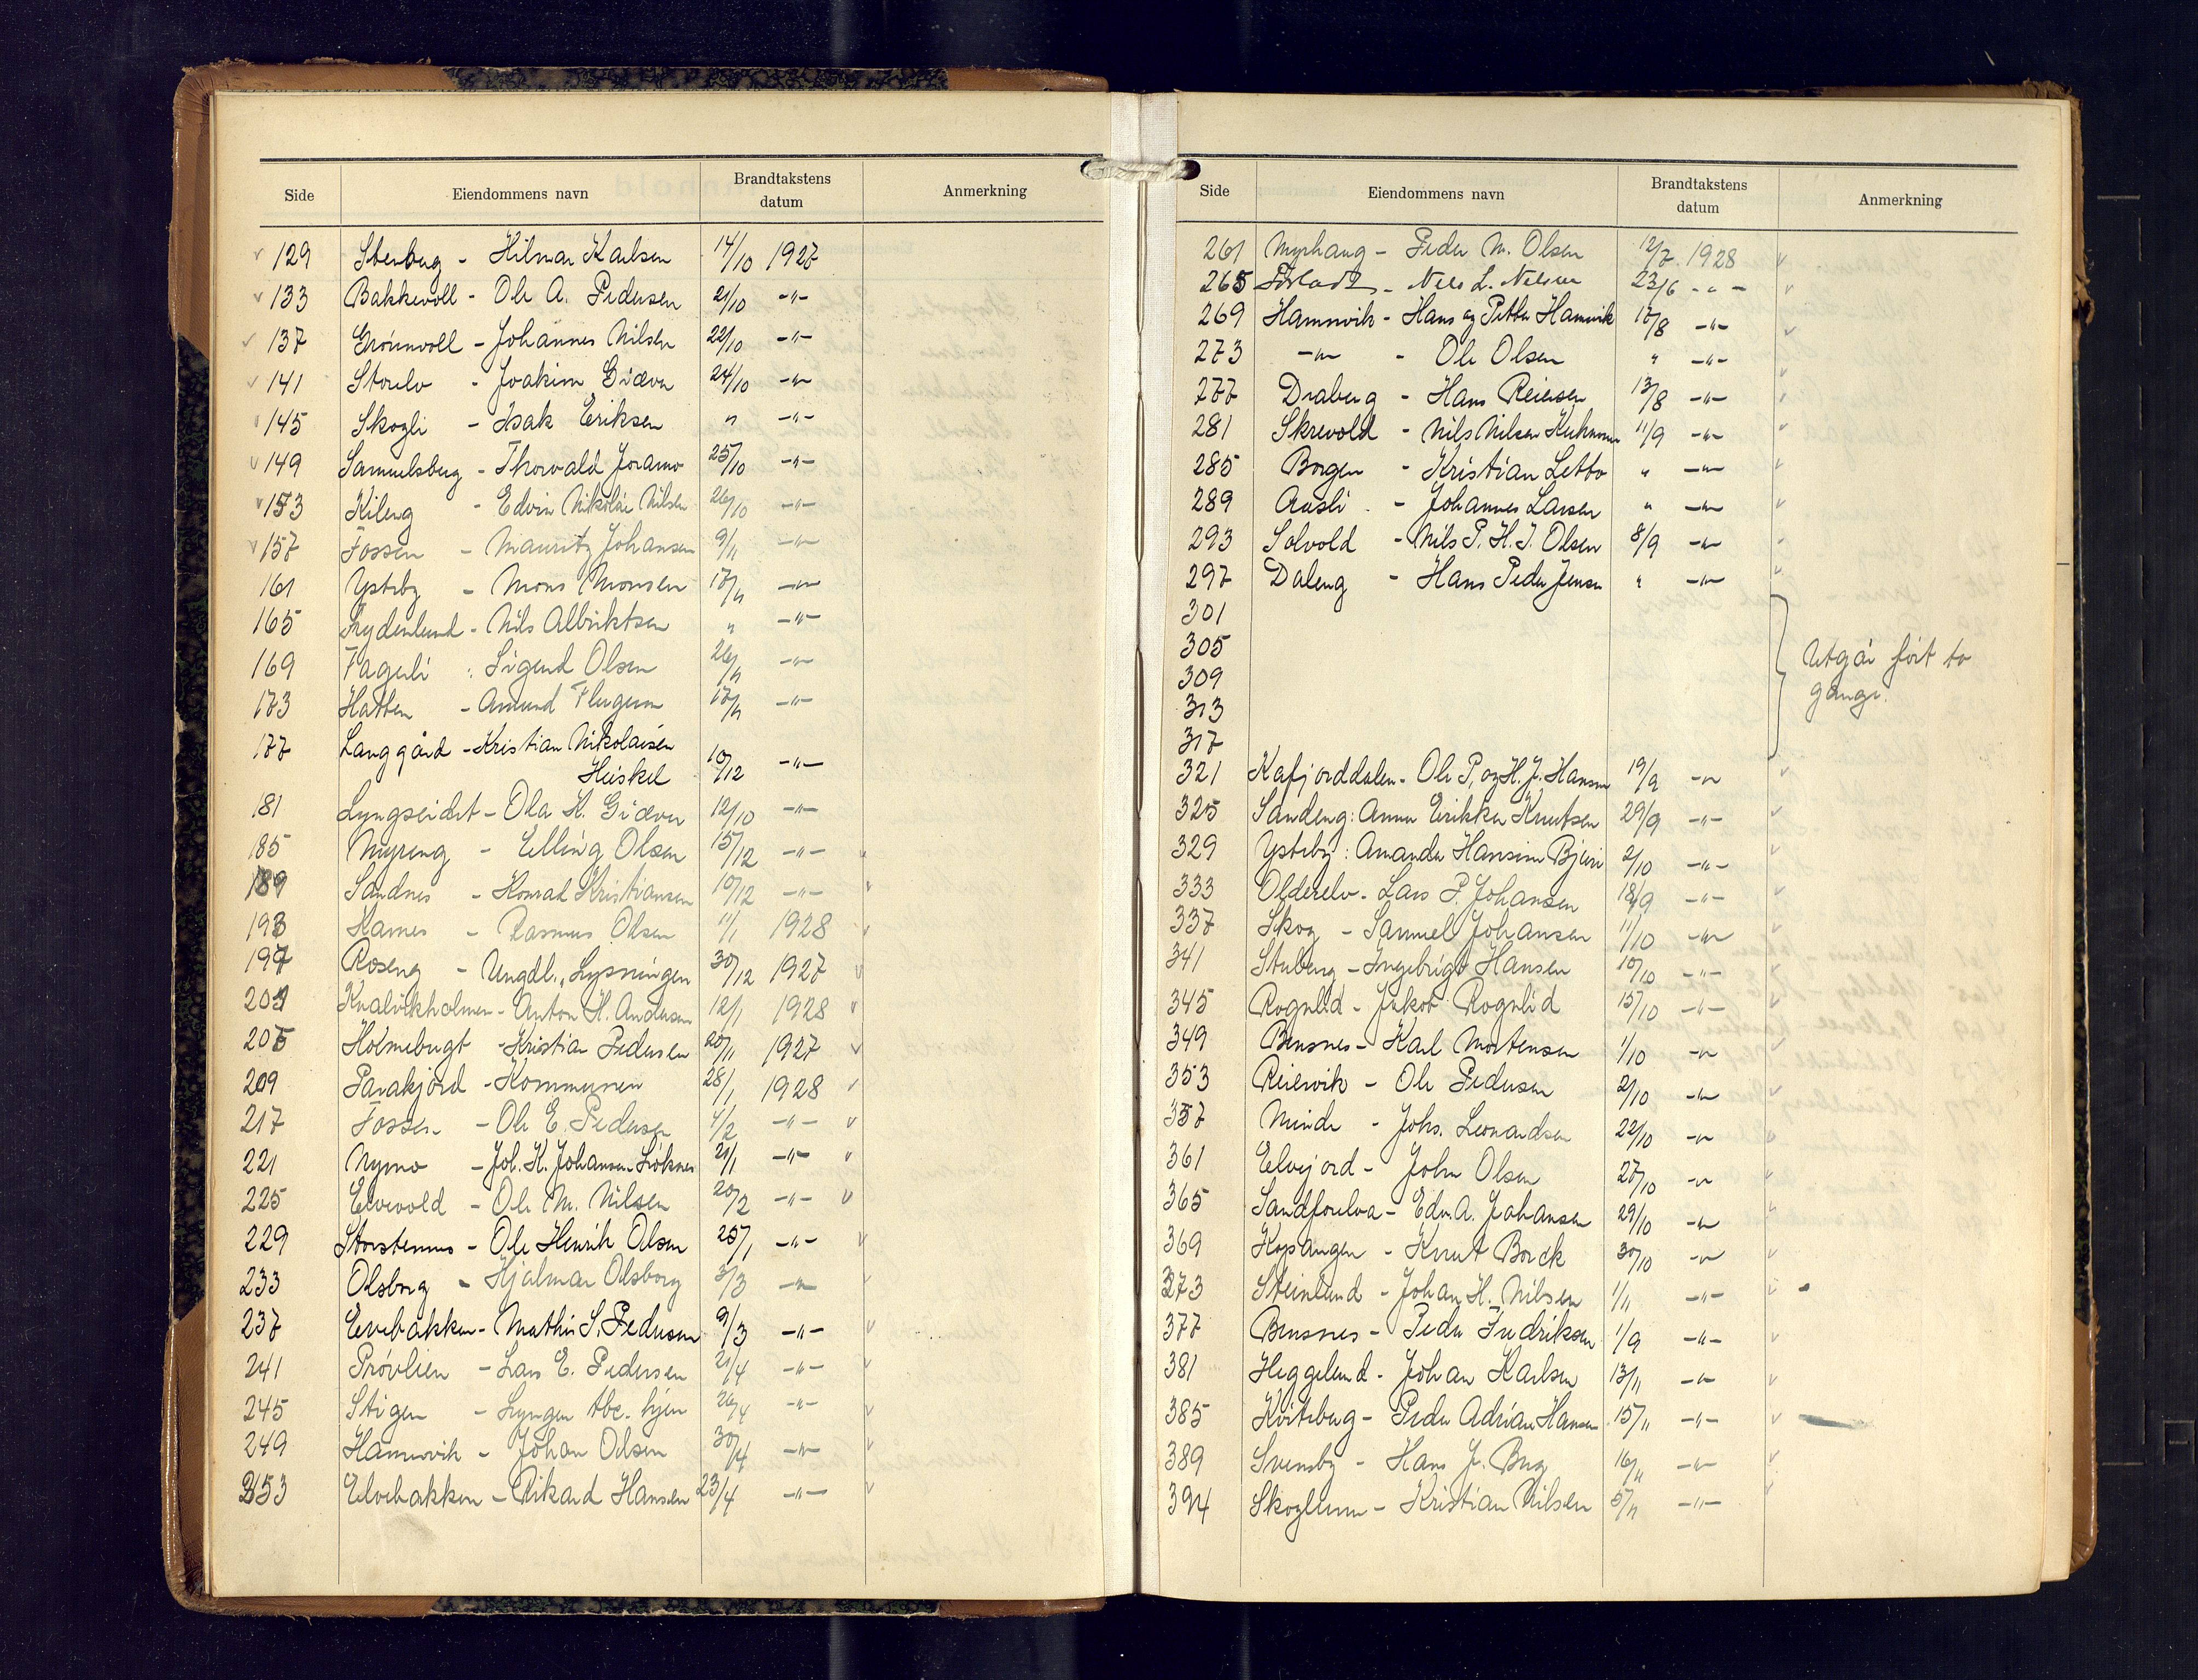 Side Eiendommens navn Brandtakstens datum Anmerkning
129 Stenberg - Hilmar Karlsen 14/10 1927
133 Bakkevoll - Ole A. Pedersen 21/10 -"-
137 Grönnvoll - Johannes Nilsen 22/10 -"-
141 Storelv - Joakim Giæver 24/10 -"-
145 Skogli - Isak Eriksen " -"-
149 Samuelsberg - Thorvald Joramo 25/10 -"-
153 Kileng - Edvin Nikolai Nilsen 26/10 -"-
157 Fossen - Mauritz Johansen 9/11 -"-
161 Ysteby - Mons Monsen 17/11 -"-
165 Frydenlund - Nils Albriktsen " -"-
169 Fagerli : Sigurd Olsen 26/11 -"-
173 Hatten - Amund Flugum 17/11 -"-
177 Langgård - Kristian Nikolaisen
Heiskel 10/12 -"-
181 Lyngseidet - Ola K. Giæver 12/10 -"-
185 Myreng - Elling Olsen 15/12 -"-
189 Sandnes - Konrad Kristiansen 10/12 -"- v
193 Karnes - Rasmus Olsen 11/1 1928 v
197 Roseng - Ungdl. „Lysningen 30/12 1927 v
201 Kvalvikholmen - Anton H. Andersen 12/1 1928 v
205 Holmebugt - Kristian Pedersen 20/11 1927 v
209 Parakjord - Kommunen 28/1 1928 v
217 Fossen - Ole E. Pedersen 4/2 -"- v
221 Nymo - Joh. K. Johansen Löknes 21/1 -"- v
225 Elvevold - Ole M. Nilsen 20/2 -"- v
229 Storstennes - Ole Henrik Olsen 25/1 -"- v
233 Olsborg - Hjalmar Olsborg 3/3 -"- v
237 Evebakken - Mathis S. Pedersen 9/3 -"- v
241 Prövlien - Lars E. Pedersen 21/4 -"- v
245 Stigen - Lyngen tbc. hjem 26/4 -"- v
249 Hamnvik - Johan Olsen 30/4 -"- v
253 Elvebakken - Rikard Hansen 23/4 -"- v
Side Eiendommens navn Brandtakstens datum Anmerkning
261 Myrhaug - Peder M. Olsen 12/7 1928 v
265 - Nils L. Nilsen 23/6 -"- v
269 Hamnvik - Hans og Petter Hamnvik 17/8 -"- v
273 -"- - Ole Olsen " -"- v
277 Draberg - Hans Reiersen 13/8 -"- v
281 Skrevold - Nils Nilsen 11/9 -"- v
285 Borgen - Kristian Letto " -"- v
289 Aasli - Johannes Larsen " -"- v
293 Solvold - Nils P. H. J. Olsen 8/9 -"- v
297 Daleng - Hans Peder Jensen " -"- v
301
305
309 Utgår fört to
313 gange.
317
321 Kafjorddalen - Ole P. og H. J. Hansen 19/9 -"- v
325 Sandeng : Anna Erikka Knutsen 29/9 -"- v
329 Ysteby : Amanda Hansine Bjerri 2/10 -"- v
333 Olderelv - Lars P. Johansen 18/9 -"- v
337 Skog - Samuel Johansen 11/10 -"- v
341 Stuberg - Ingebrigt Hansen 10/10 -"- v
345 Rognlid - Jakob Rognlid 15/10 -"- v
349 Bensnes - Karl Mortensen 1/10 -"- v
353 Reiervik - Ole Pedersen 2/10 -"- v
357 Minde - Johs. Leonardsen 22/10 -"- v
361 Elvejord - John Olsen 27/10 -"- v
365 Sandförelva - Edv. A. Johansen 29/10 -"- v
369 Kopangen - Knut Borck 30/10 -"- v
373 Steinlund - Johan H. Nilsen 1/11 -"- v
377 Bensnes - Peder Fredriksen 1/9 -"- v
381 Heggelund - Johan Karlsen 13/11 -"- v
385 Kviteberg - Peder Adrian Hansen 15/11 -"- v
389 Svensby - Hans J. Berg 16/11 -"- v
394 Skoglunn - Kristian Nilsen 5/11 -"- v